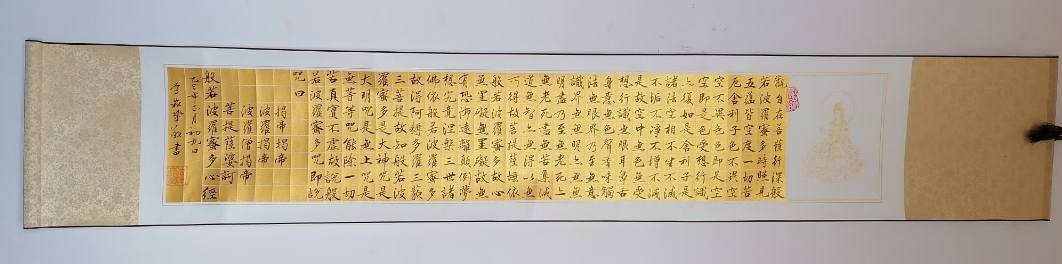 觀自在菩薩行深般
若波羅蜜多時照見
五蘊皆空度一切苦
厄舍利子色不異空
空不異色色即是空
空即是色受想行識
亦復如是舍利子是
諸法空相不生不滅
不垢不淨不增不減
是故空中無色無受
想行識無眼耳鼻舌
身意無色聲香味觸
法無眼界乃至無意
識界無無明亦無無
明盡乃至無老死亦
無老死盡無苦集滅
道無智亦無得以無
所得故菩提薩埵依
般若波羅蜜多故心
無罣礙無罣礙故無
有恐怖遠離顛倒夢
想究竟涅槃三世諸
佛依般若波羅蜜多
故得阿耨多羅三藐
三菩提故知般若波
羅蜜多是大神咒是
大明咒是無上咒是
無等等咒能除一切
苦真實不虛故說般
若波羅蜜多咒即說
咒曰
揭帝揭帝
波羅揭帝
波羅僧揭帝
菩提薩婆訶
般若波羅蜜多心經
月初九日
敬書